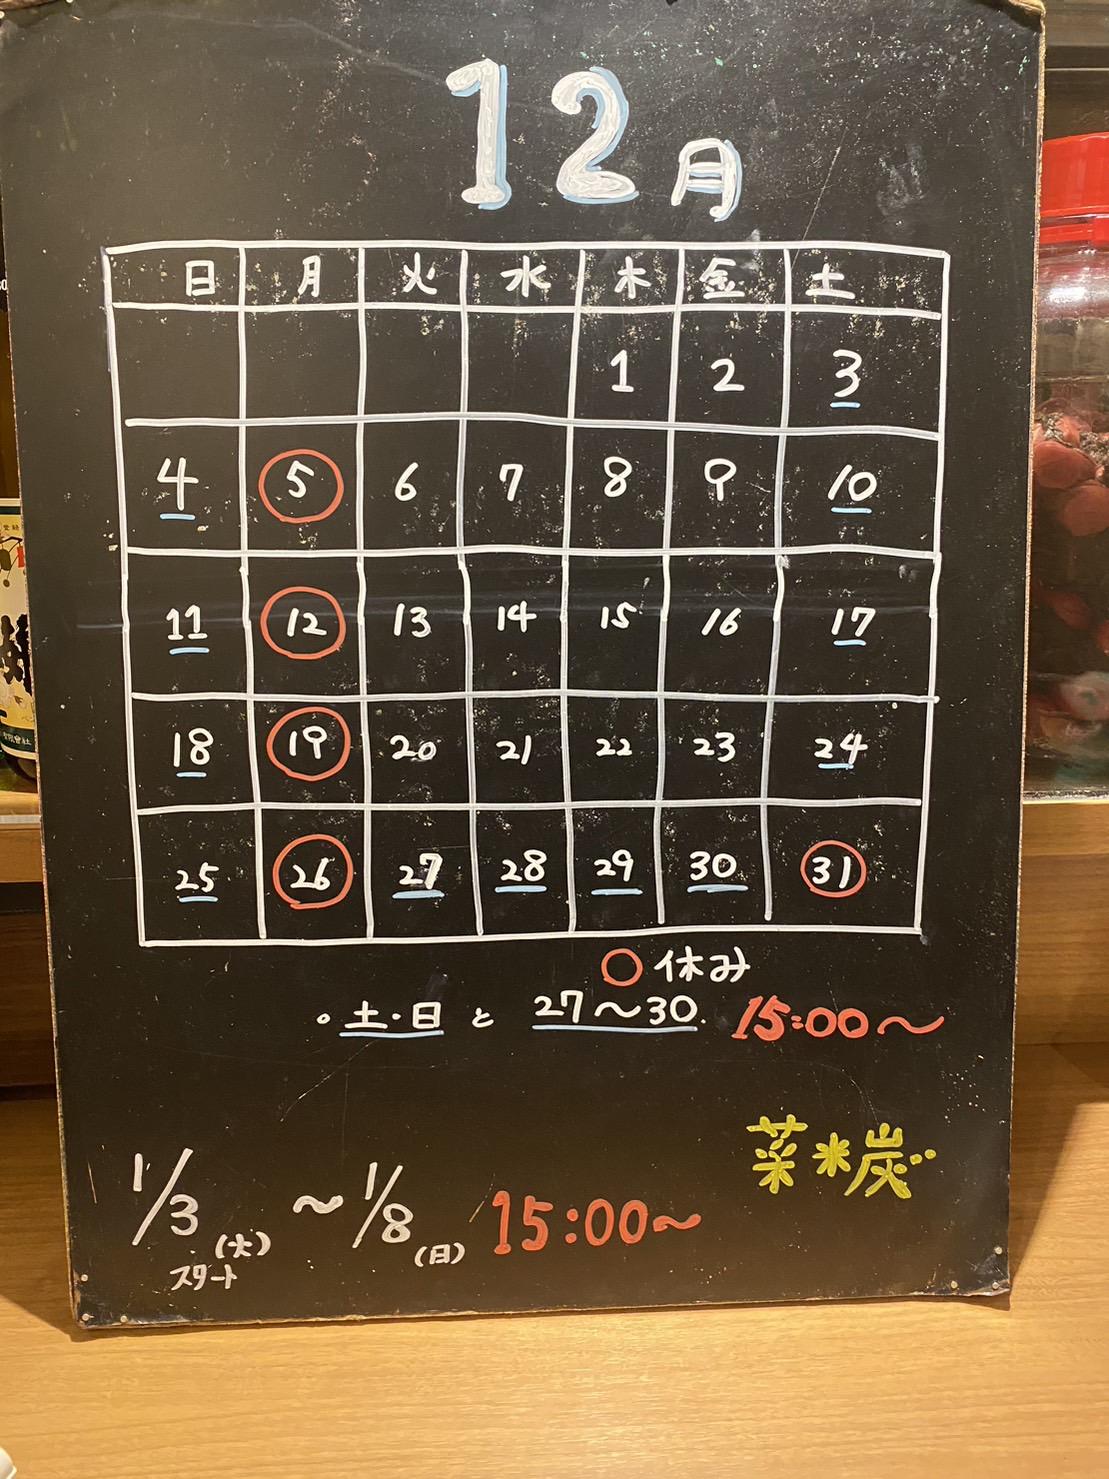 12月
日 月 火 水 木 金 土
1 2 3
4 5 6 7 8 9 10
11 12 13 14 15 16 17
18 19 20 21 22 23 24
25 26 27 28 29 30 31
○ 休み
。土・日 と 27〜30. 15:00〜
菜米炭
1/3(火) 〜 1/8(日) 15:00〜
スタート